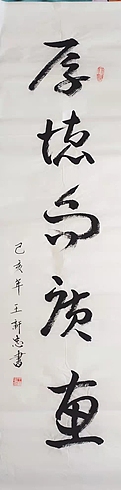 厚德而廣惠
己亥年王軒志書